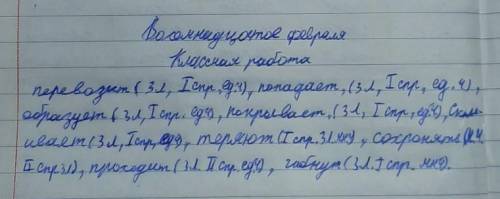 Восемнадцатое февраля
Классная работа
перевозит (3 л, I спр, ед.ч), попадает, (3 л, I спр, ед. ч),
образует (3 л, I спр. ед.ч), покрывает, (3 л, I спр, ед.ч),
ивает (3 л, I спр, ед.ч), теряют (I спр. 3 л мн), сохранять
II спр 3 л), проходит (3 л. II спр. ед.ч), гибнут (3 л. I спр. мн.ч).